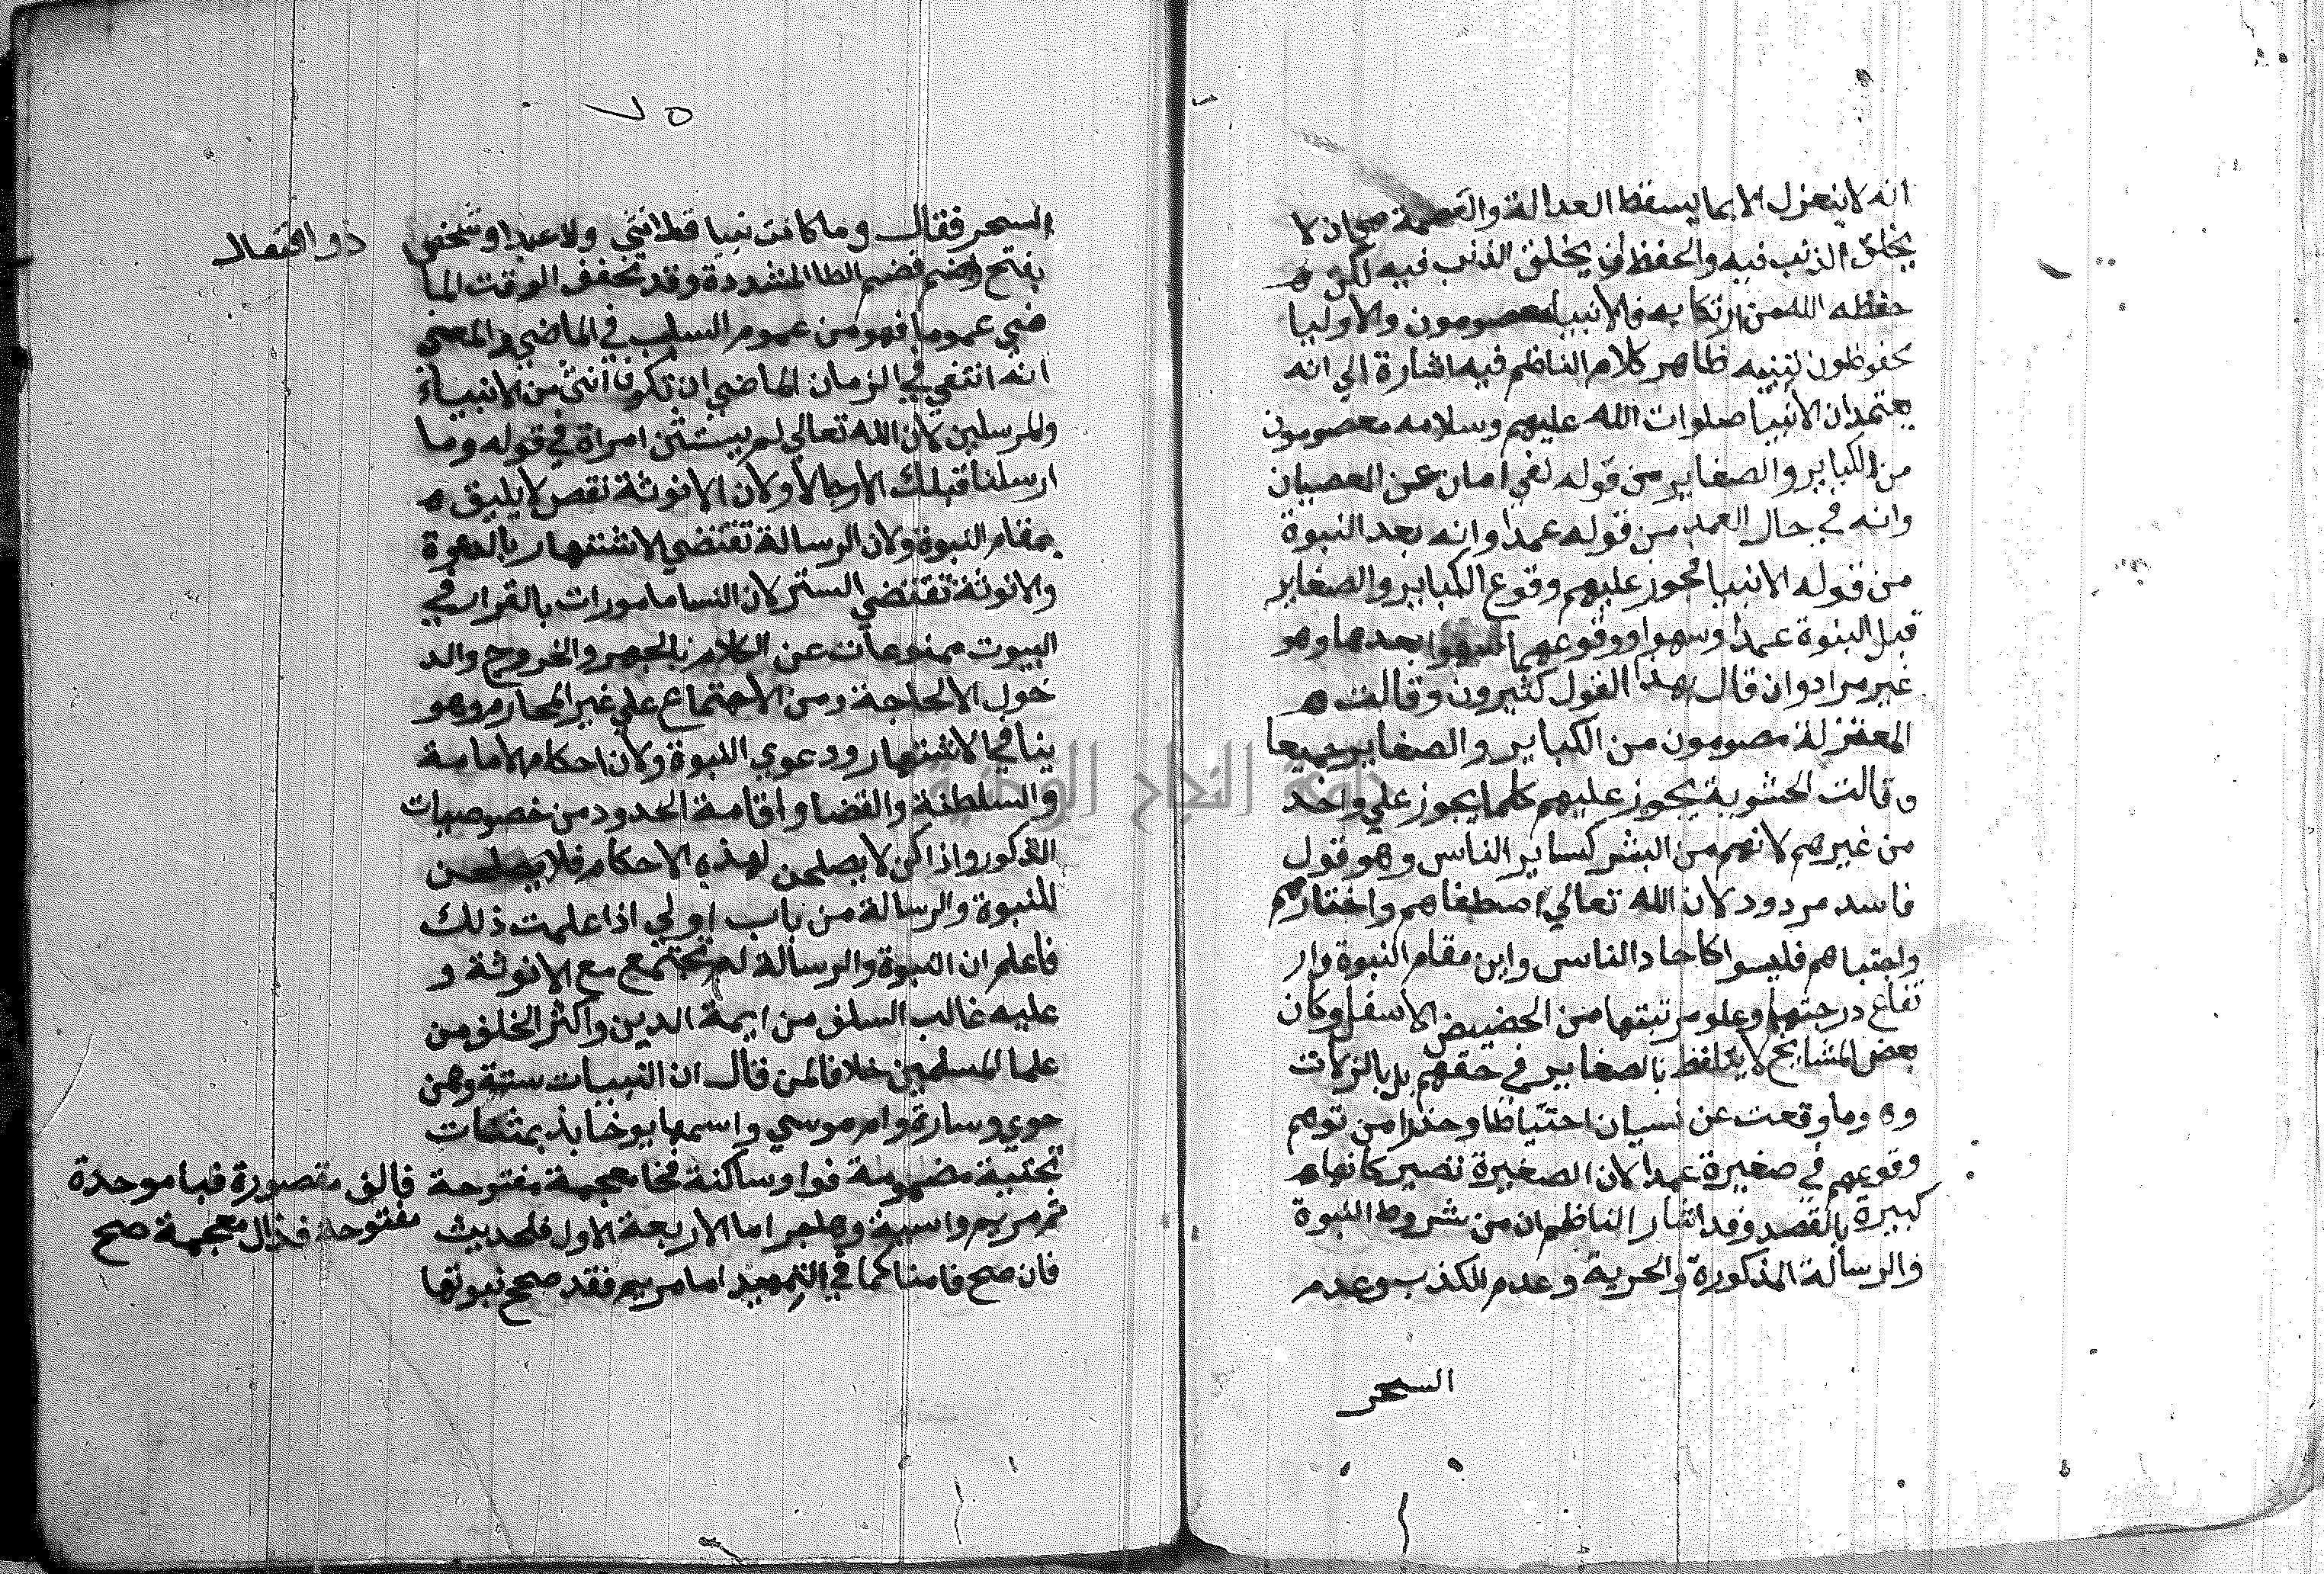 انه لا ينعزل الا بما يسقط العدالة والعصمة هي ان لا
يخلق الذنب فيه والحفظ ان يخلق الذنب فيه لكن
حفظه الله من ارتكابه فالانبيا معصومون والاوليا
محفوظون تنبيه ظاهر كلام الناظم فيه اشارة الي انه
يعتمد ان الانبيا صلوات الله عليهم وسلامه معصومون
من الكباير والصغاير من قوله لفي امان عن العصيان
وانه في حال العمد من قوله عمدا وانه بعد النبوة
من قوله الانبيا فيجوز عليهم وقوع الكباير والصغاير
قبل النبوة عمدا وسهوا ووقوعهما سهوا بعدها وهو
غير مراد وان قال بهذا القول كثيرون وقالت
المعتزلة معصومون من الكباير والصغاير جميعا
وقالت الحشوية يجوز عليهم كلما يجوز علي واحد
من غيرهم لانهم من البشر كساير الناس وهو قول
فاسد مردود لان الله تعالي اصطفاهم واختارهم
واجتباهم فليسوا كاحاد الناس واين مقام النبوة وار
تفاع درجتها وعلو مرتبتها من الحضيض الاسفل وكان
بعض المشايخ لا يتلفظ بالصغاير في حقهم بل بالزلات
وه وما وقعت عن نسيان احتياطا وحذرا من توهم
وقوعهم في صغيرة عمدا لان الصغيرة تصير كانها
كبيرة بالقصد وقد اشار الناظم ان من شروط النبوة
والرسالة المذكورة والحرية وعدم الكذب وعدم
السحر
٧٥
السحر فقال وما كانت نبيا قط انثي ولا عبد او شخص ذو افتعال
بفتح وضم فضم الطا المشددة وقد تخفف الوقت الما
ضي عموما فهو من عموم السلب في الماضي والمعني
انه انتفي في الزمان الماضي ان تكون انثي من الانبياء
والمرسلين لان الله تعالي لم يستثن امراة في قوله وما
ارسلنا قبلك الا رجالا ولان الانوثة نقص لا يليق
بمقام النبوة ولان الرسالة تقتضي الاشتهار بالدعوة
والانوثة تقتضي الستر لان النسا مامورات بالقرار في
البيوت ممنوعات عن الكلام بالجهر والخروج والد
خول الا لحاجة ومن الاجتماع علي غير المحارم وهو
ينافي الاشتهار ودعوي النبوة ولان احكام الامامة
والسلطنة والقضا واقامة الحدود من خصوصيات
الذكور واذا كن لا يصلحن لهذه الاحكام فلا يصلحن
للنبوة والرسالة من باب اولي اذا علمت ذلك
فاعلم ان النبوة والرسالة لم تجتمع مع الانوثة و
عليه غالب السلف من ايمة الدين واكثر الخلف من
علما المسلمين خلافا لمن قال ان النبيات ستة وهن
حوي وسارة وام موسي واسمها يوخابذ بمثنات
تحتية مضمومة فواو ساكنة فخا معجمة مفتوحة فالف مقصورة فبا موحدة
مفتوحة فذال معجمة صح
ثم مريم واسية وهاجر اما الاربعة الاول فلحديث
فان صح فامنا كما في التمهيد اما مريم فقد صح نبوتها